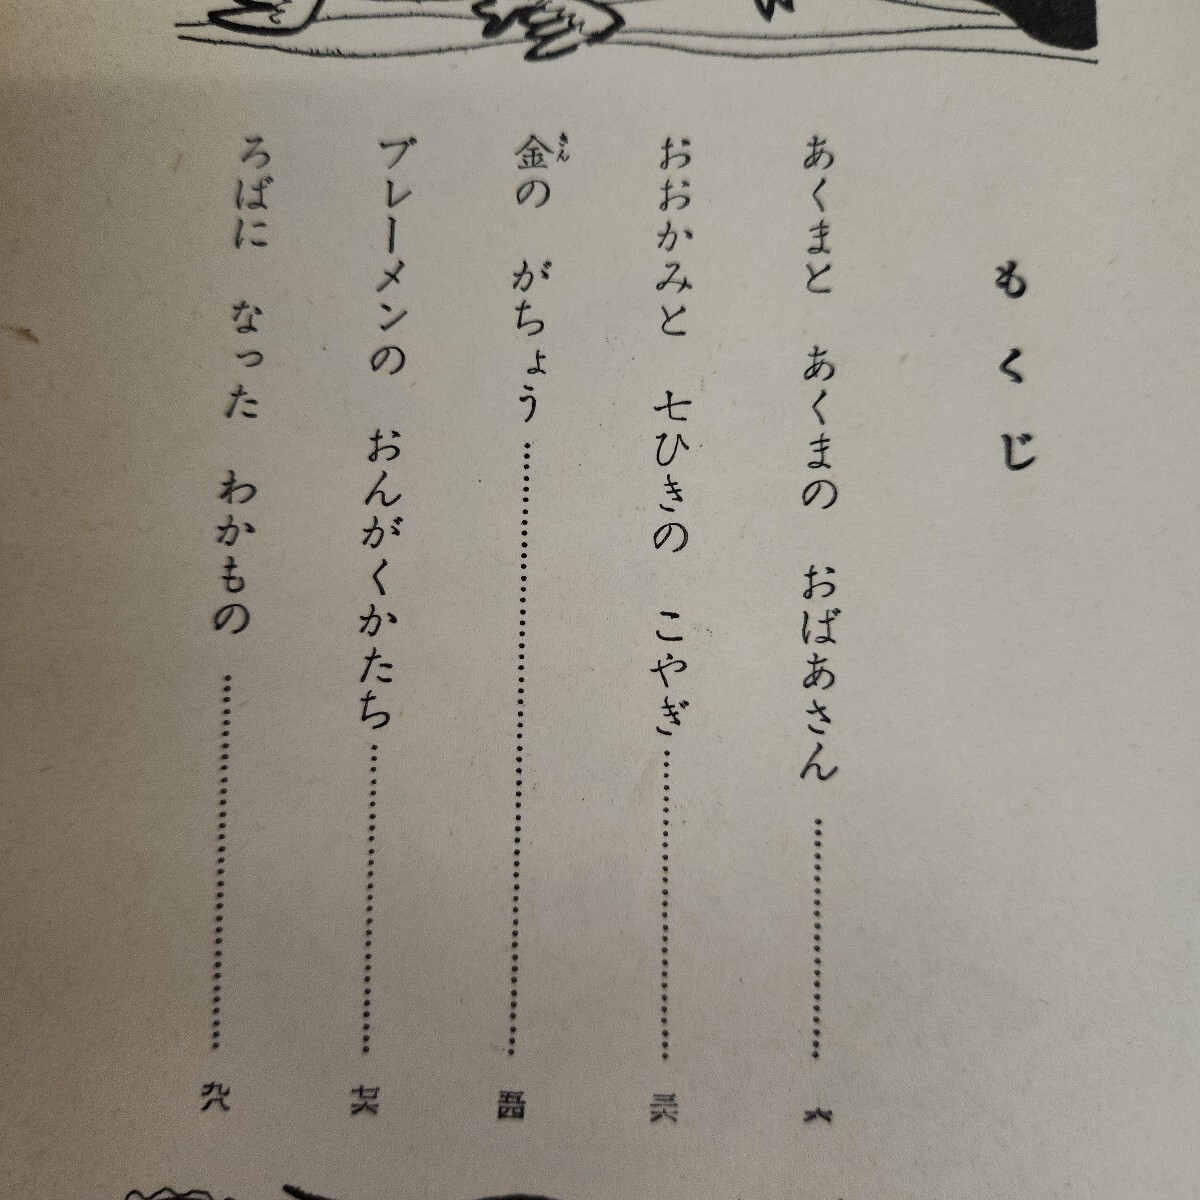 もくじ
あくまと あくまの おばあさん……………六
おおかみと 七ひきの こやぎ……………三六
金の がちょう……………五四
きん
ブレーメンの おんがくかたち……………七六
ろばに なった わかもの……………九八